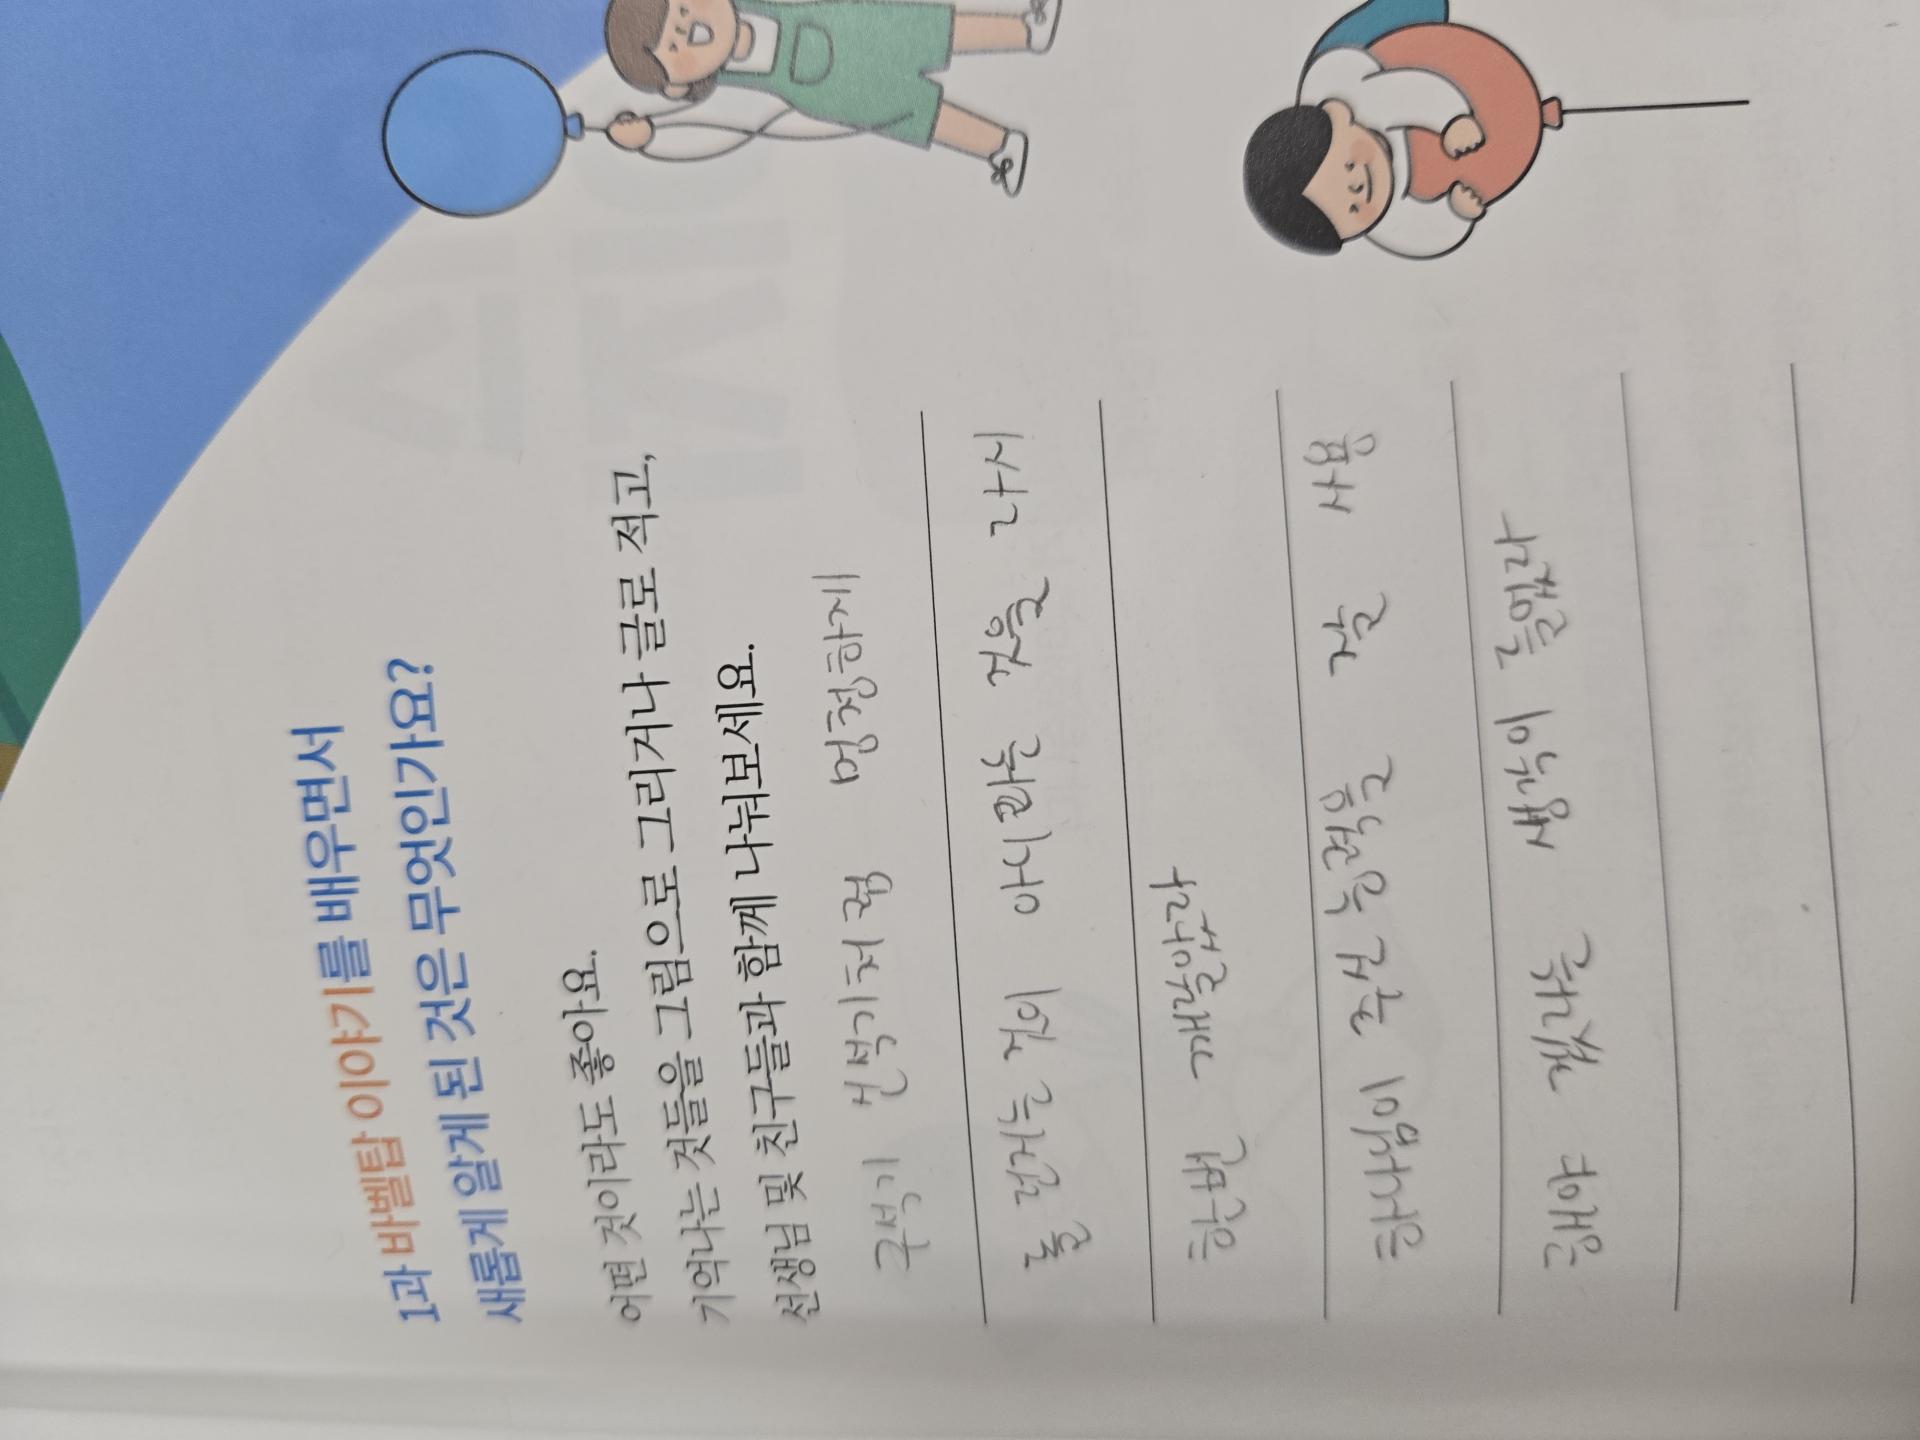 1과 바벨탑 이야기를 배우면서
새롭게 알게 된 것은 무엇인가요?
어떤 것이라도 좋아요.
기억나는 것들을 그림으로 그리거나 글로 적고,
선생님 및 친구들과 함께 나눠보세요.
구벽기 건벽기처럼 멍청하게
돌 탑거는 것이 아니라는 것을 다시
한번 깨달았다
하나님이 주신 축복을 잘 사용
해야 겠다는 생각이 들었다